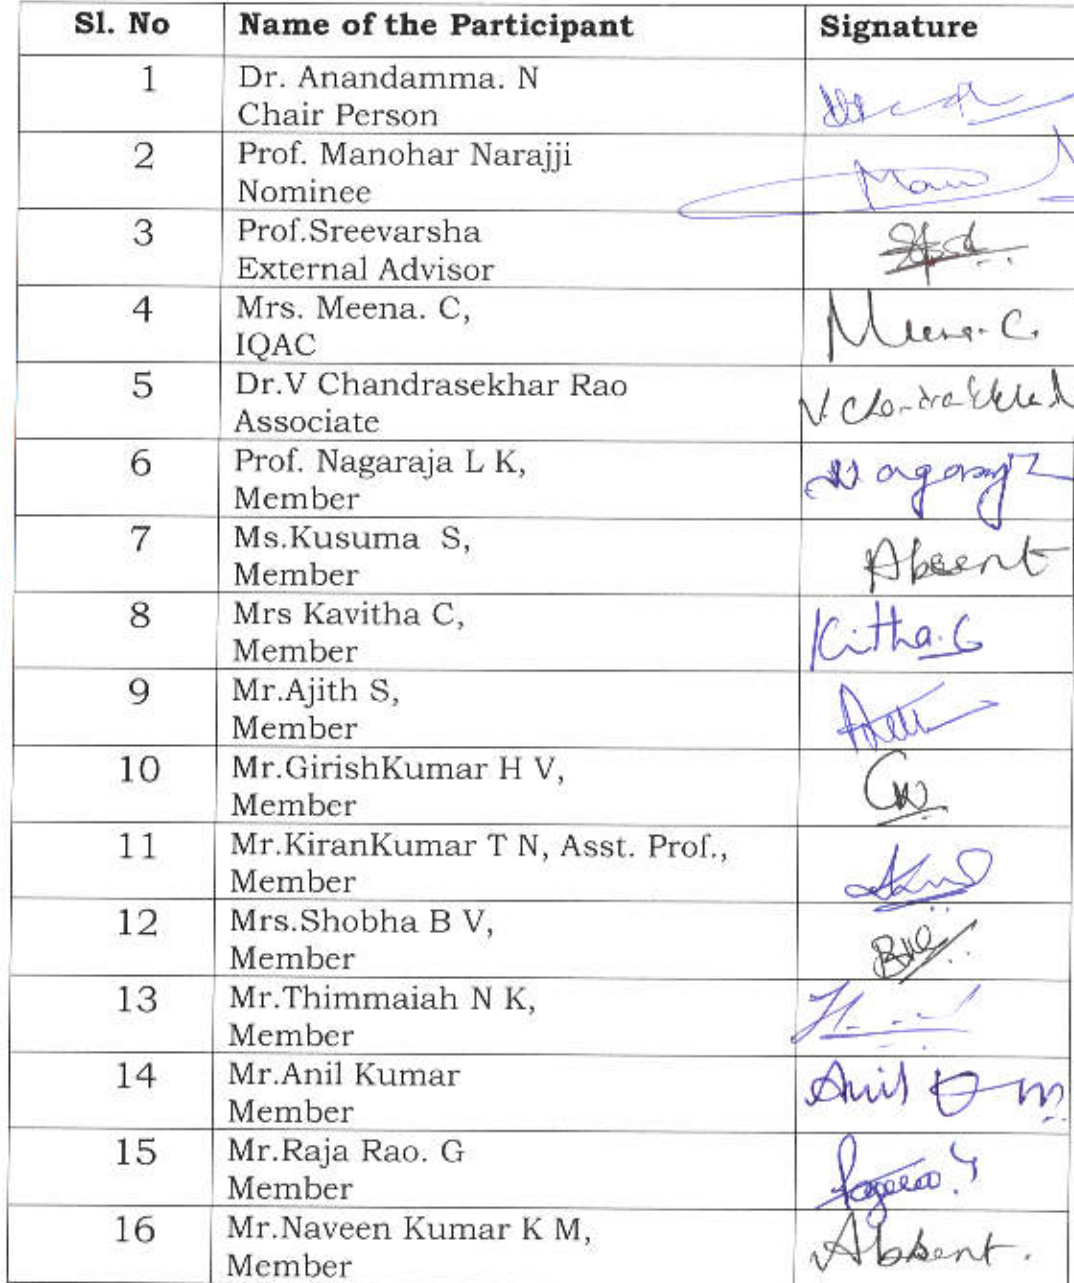 Sl. No Name of the Participant Signature
1 Dr. Anandamma. N
Chair Person
2 Prof. Manohar Narajji
Nominee
3 Prof.Sreevarsha
External Advisor
4 Mrs. Meena. C, Meena. C.
IQAC
5 Dr.V Chandrasekhar Rao
Associate
6 Prof. Nagaraja L K,
Member
7 Ms.Kusuma S, Absent
Member
8 Mrs Kavitha C,
Member
9 Mr.Ajith S,
Member
10 Mr.GirishKumar H V,
Member
11 Mr.KiranKumar T N, Asst. Prof.,
Member
12 Mrs.Shobha B V,
Member
13 Mr.Thimmaiah N K,
Member
14 Mr.Anil Kumar Anil
Member
15 Mr.Raja Rao. G
Member
16 Mr.Naveen Kumar K M, Absent.
Member